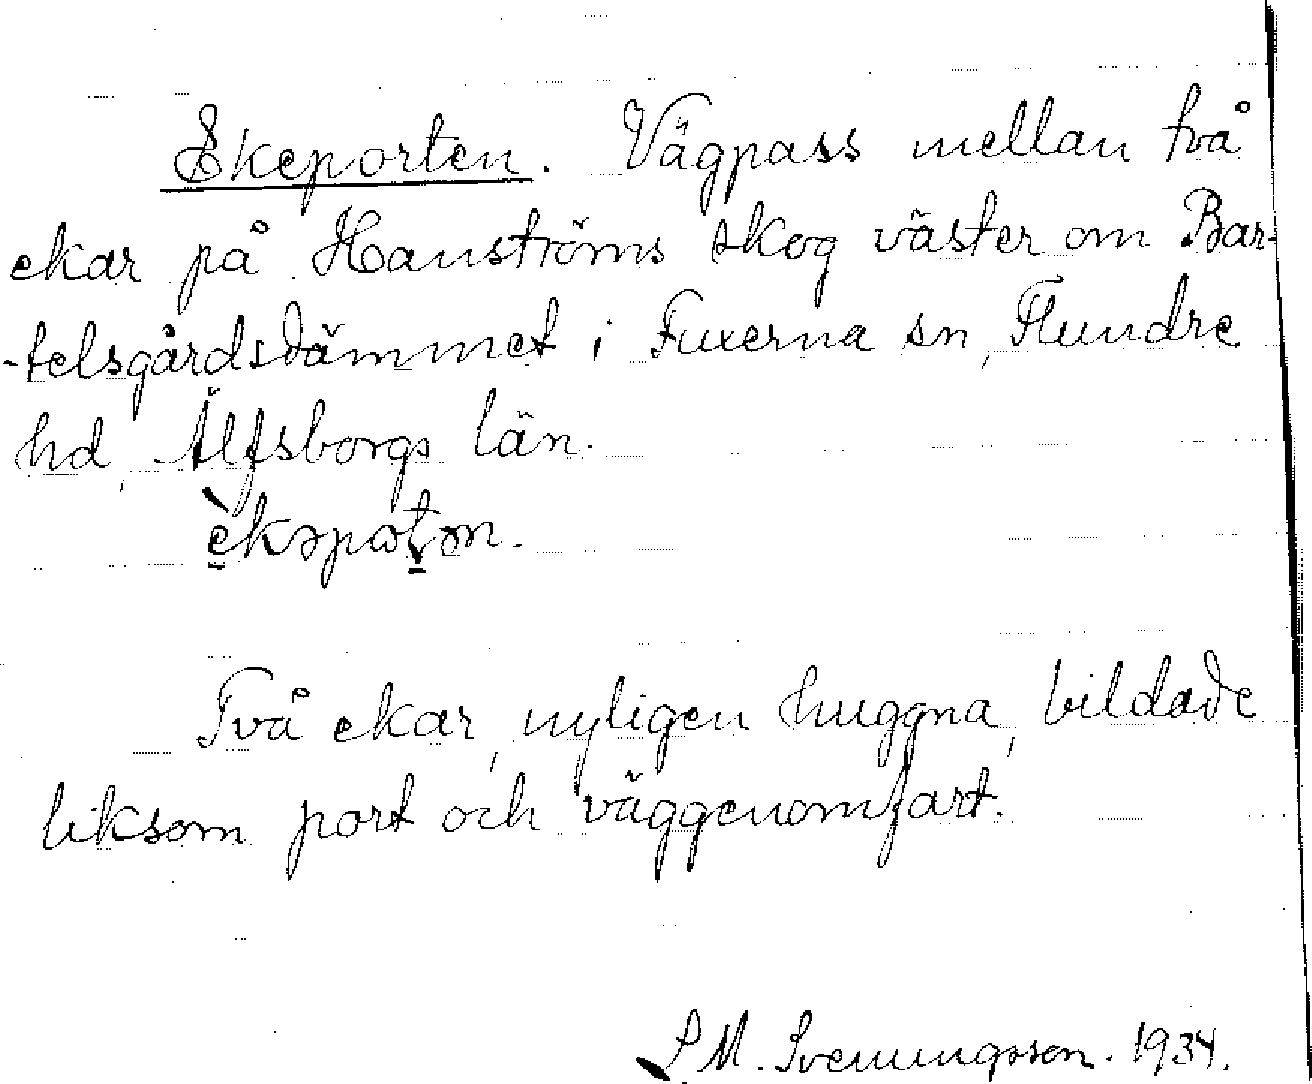 Ekeporten. Vägpass mellan två
ekar på Hanströms skog väster om Bar-
-telsgårdsdämmet i Fuxerna sn, Flundre
hd, Älfsborgs län.
Två ekar, nyligen huggna, bildade
liksom port och väggenomfart.
S M. Svenungsson. 1934.